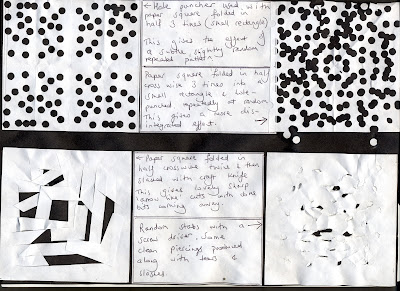 ← Hole puncher used with
paper square folded in
half 3 times (small rectangle)
This gives the effect of
a subtle slightly random
repeated pattern.
Paper square folded in half
cross wise 3 times into
small rectangle & hole-
punched repeatedly at random.
This gives a more dis-
integrated effect. →
← Paper square folded in
half crosswise twice & then
slashed with craft knife
This gives lovely sharp
'arrow like' cuts with some
bits coming away.
Random stabs with a
screw driver. Some
clean piercings produced
along with tears &
slashes. →